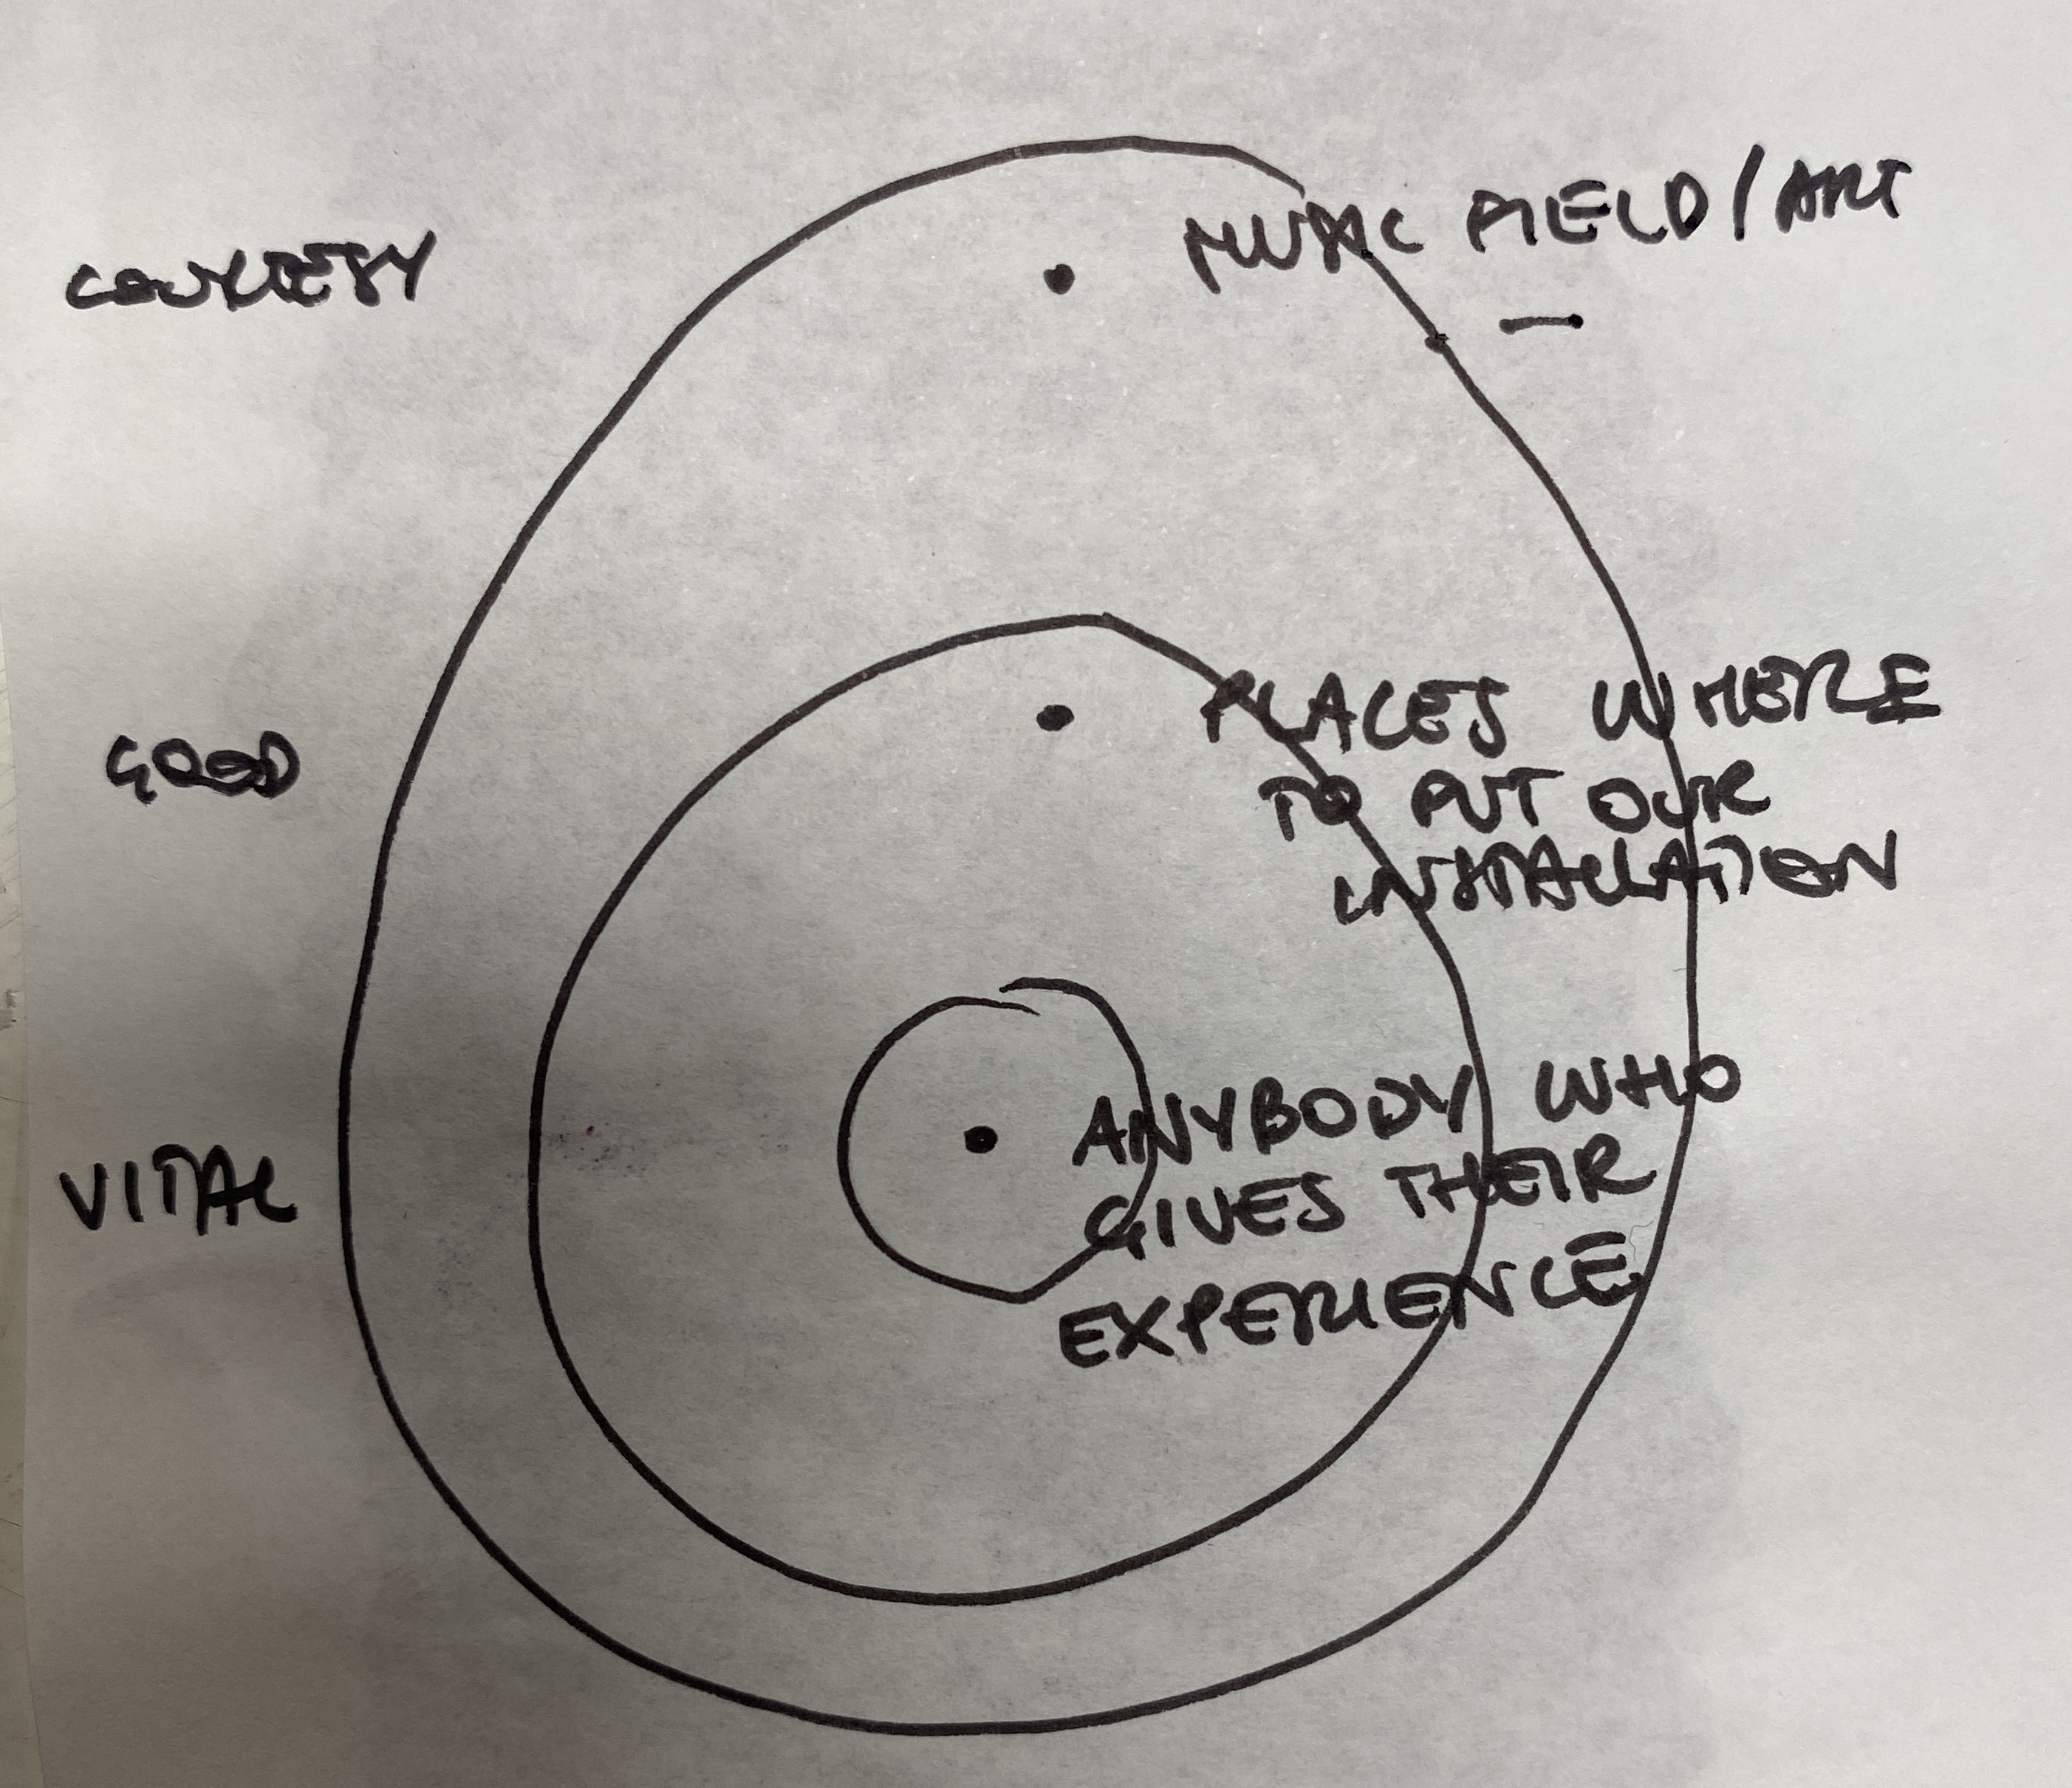 COURTESY
MUSIC FIELD / ART
GOOD
PLACES WHERE
TO PUT OUR
INSTALLATION
VITAL
ANYBODY WHO
GIVES THEIR
EXPERIENCE